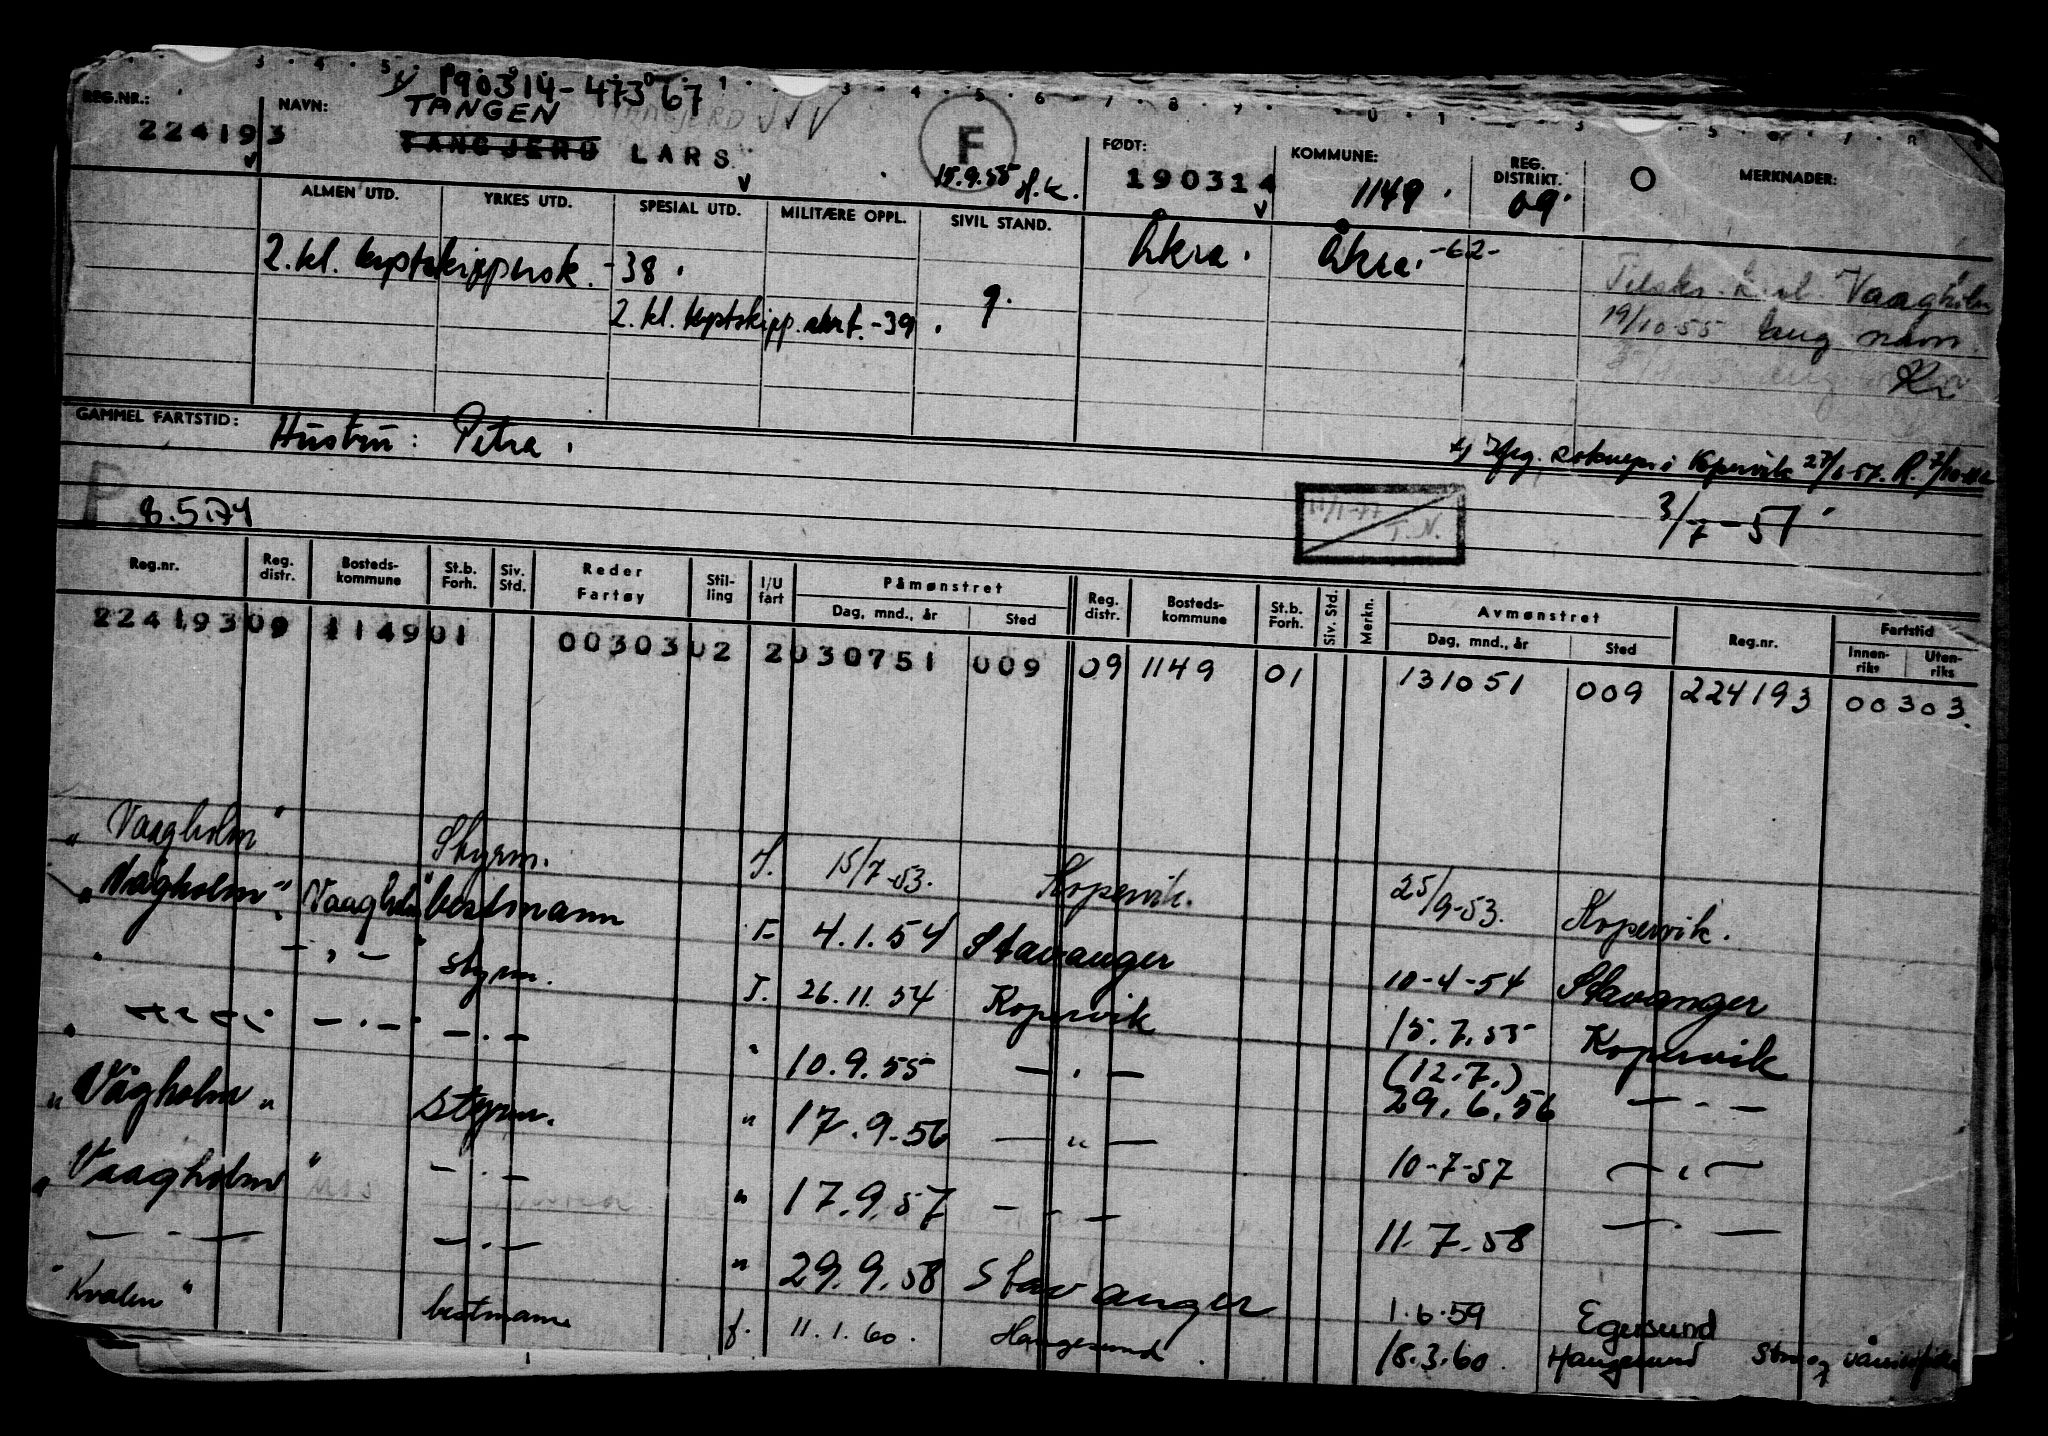 190314-47367
REG.NR.: NAVN: TANGEN
224193 TANGJERD LARS F 15.9.55 FØDT: 190314 KOMMUNE: 1149 REG. DISTRIKT. 09 MERKNADER:
ALMEN UTD. YRKES UTD. SPESIAL UTD. MILITÆRE OPPL. SIVIL STAND.
2. kl. kystskippersk. -38. Åkra. Åkra. -62-
2. kl. kystskipp. -39. g. Vaagholm
19/10-55 navn.
GAMMEL FARTSTID: Hustru: Petra.
Kopervik
P 8.5.74 T.N. 3/7-57
Reg.nr. Reg. distr. Bosteds-kommune St.b. Forh. Siv. Std. Reder Fartøy Stil-ling I/U fart Påmønstret Dag, mnd., år Sted Reg. distr. Bosteds-kommune St.b. Forh. Siv. Std. Merkn. Avmønstret Dag, mnd., år Sted Reg.nr. Fartstid Innen-riks Uten-riks
224193 09 1149 01 003030 2 2 030751 009 09 1149 01 131051 009 224193 00303.
"Vaagholm" Styrm. 15/7-53. Kopervik. 25/9-53. Kopervik.
"Vågholm" "Vaagholm" bestmann F 4.1.54 Stavanger 10-4-54 Stavanger
" — " — styrm. I. 26.11.54 Kopervik 15.7.55 Kopervik
(12.7.)
" — " — — " — — " — " 10.9.55 — " — 29.6.56 — " —
"Vågholm" styrm. " 17.9.56 — " — 10-7-57 — " —
"Vaagholm" — " — " 17.9.57 — " — 11.7.58 — " —
— " — — " — " 29.9.58 Stavanger 1.6.59 Egersund
"Kvalen" bestmann f. 11.1.60. Haugesund. 18.3.60. Haugesund Stor og